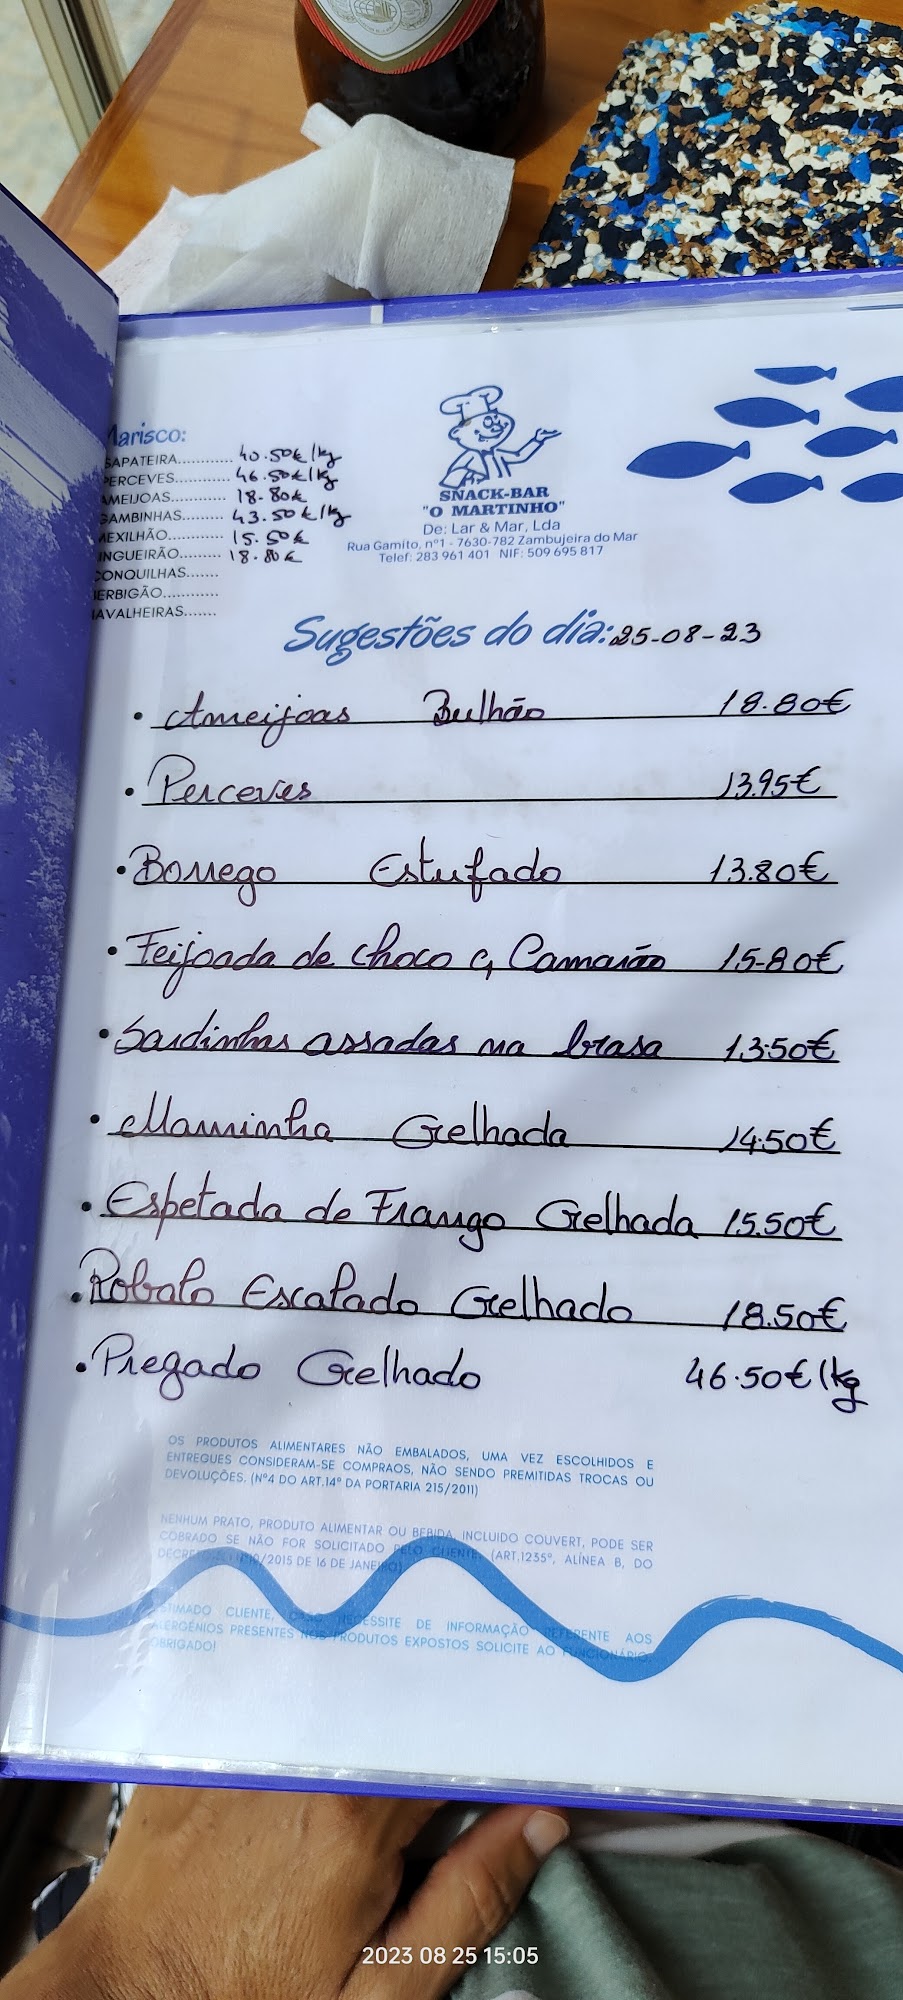 Marisco:
SAPATEIRA............ 40.50€/kg
PERCEVES............ 46.50€/kg
AMEIJOAS............ 18.80€
GAMBINHAS......... 43.50€/kg
MEXILHÃO............ 15.50€
LINGUEIRÃO.......... 18.80€
CONQUILHAS.......
BERBIGÃO............
NAVALHEIRAS.......
SNACK-BAR
"O MARTINHO"
De: Lar & Mar, Lda
Rua Gamito, nº1 - 7630-782 Zambujeira do Mar
Telef: 283 961 401 NIF: 509 695 817
Sugestões do dia: 25-08-23
• Ameijoas Bulhão 18.80€
• Perceves 13.95€
• Borrego Estufado 13.80€
• Feijoada de choco c/ Camarão 15.80€
• Sardinhas assadas na brasa 13.50€
• Maminha Grelhada 14.50€
• Espetada de Frango Grelhada 15.50€
• Robalo Escalado Grelhado 18.50€
• Pregado Grelhado 46.50€/kg
OS PRODUTOS ALIMENTARES NÃO EMBALADOS, UMA VEZ ESCOLHIDOS E
ENTREGUES CONSIDERAM-SE COMPRAOS, NÃO SENDO PREMITIDAS TROCAS OU
DEVOLUÇÕES. (Nº4 DO ART.14º DA PORTARIA 215/2011)
NENHUM PRATO, PRODUTO ALIMENTAR OU BEBIDA, INCLUIDO COUVERT, PODE SER
COBRADO SE NÃO FOR SOLICITADO PELO CLIENTE. (ART.1235º, ALÍNEA B, DO
10/2015 DE 16 DE JANEIRO)
ESTIMADO CLIENTE, CASO NECESSITE DE INFORMAÇÃO REFERENTE AOS
ALERGÉNIOS PRESENTES NOS PRODUTOS EXPOSTOS SOLICITE AO FUNCIONÁRIO.
OBRIGADO!
2023 08 25 15:05